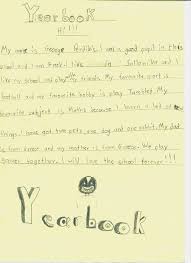 Yearbook
Hi!!!
My name is George . I am a good pupil in this
school and I am Greek. I live in . I
like my school and play with my friends. My favourite sport is
football and my favourite hobby is play . My
favourite subject is Maths because I learn a lot of
things. I have got two pets one dog and one rabbit. My dad
is from and my mother is from Greece. We play
together. I will love the school forever!!!
Yearbook